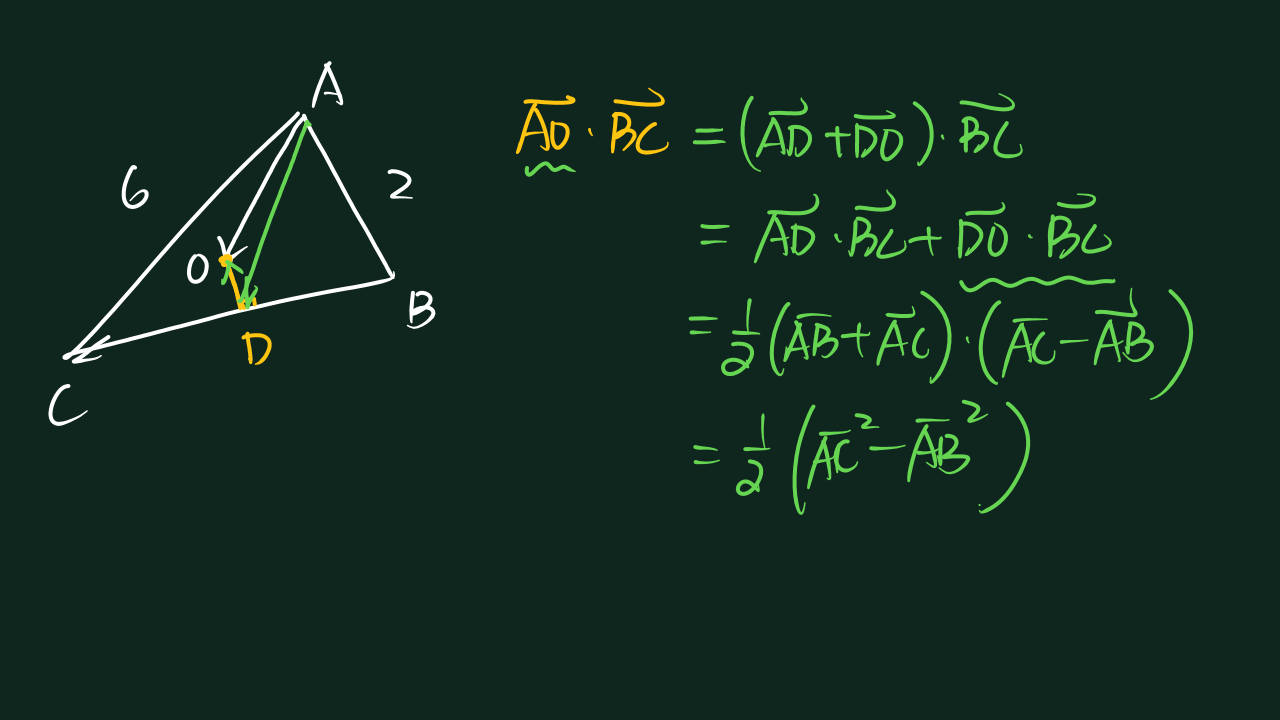 A
6
2
O
B
D
C
$\overrightarrow{AO} \cdot \overrightarrow{BC} = (\overrightarrow{AD} + \overrightarrow{DO}) \cdot \overrightarrow{BC}$
$= \overrightarrow{AD} \cdot \overrightarrow{BC} + \overrightarrow{DO} \cdot \overrightarrow{BC}$
$= \frac{1}{2}(\overrightarrow{AB} + \overrightarrow{AC}) \cdot (\overrightarrow{AC} - \overrightarrow{AB})$
$= \frac{1}{2}(\overline{AC}^2 - \overline{AB}^2)$